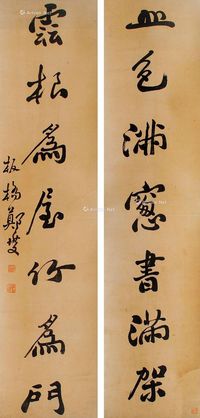 山色満窗書滿架
雲根為屋竹為門
板橋鄭燮